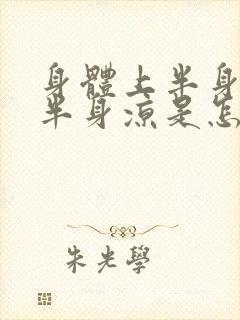 身體上半身
半身涼是怎
朱光學